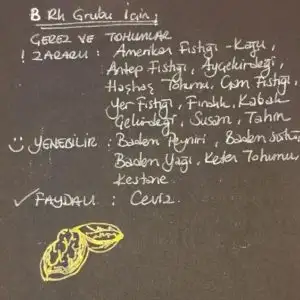 B Rh Grubu İçin;
GEREZ VE TOHUMLAR
! ZARARLI : Amerikan Fıstığı - Kaju,
Antep Fıstığı, Ayçekirdeği,
Haşhaş Tohumu, Çam Fıstığı,
Yer Fıstığı, Fındık, Kabak
Çekirdeği, Susam, Tahin
YENEBİLİR : Badem Peyniri, Badem Sütü,
Badem Yağı, Keten Tohumu
Kestane
✓ FAYDALI : Ceviz.